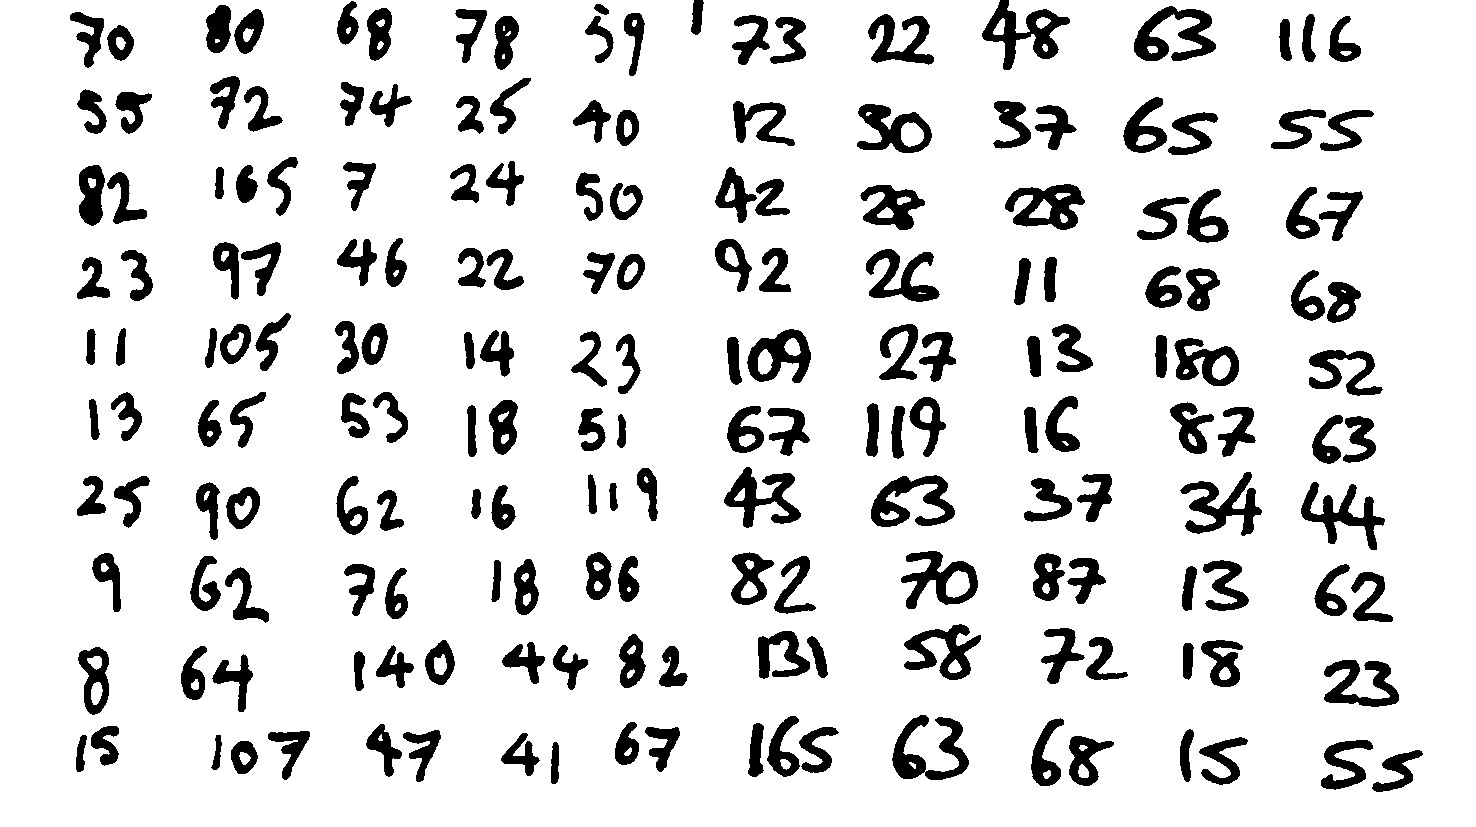 70 80 68 78 59 73 22 48 63 116
55 72 74 25 40 12 30 37 65 55
82 165 7 24 50 42 28 28 56 67
23 97 46 22 70 92 26 11 68 68
11 105 30 14 23 109 27 13 180 52
13 65 53 18 51 67 119 16 87 63
25 90 62 16 119 43 63 37 34 44
9 62 76 18 86 82 70 87 13 62
8 64 140 44 82 131 58 72 18 23
15 107 47 41 67 165 63 68 15 55